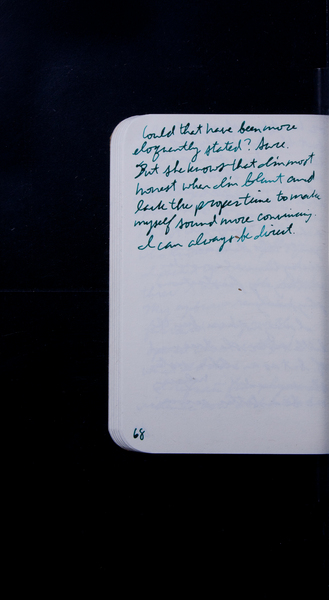 Could that have been more
eloquently stated? Sure.
But she knows that I'm most
honest when I'm blunt and
lack the proper time to make
myself sound more convincing.
I can always be direct.
68